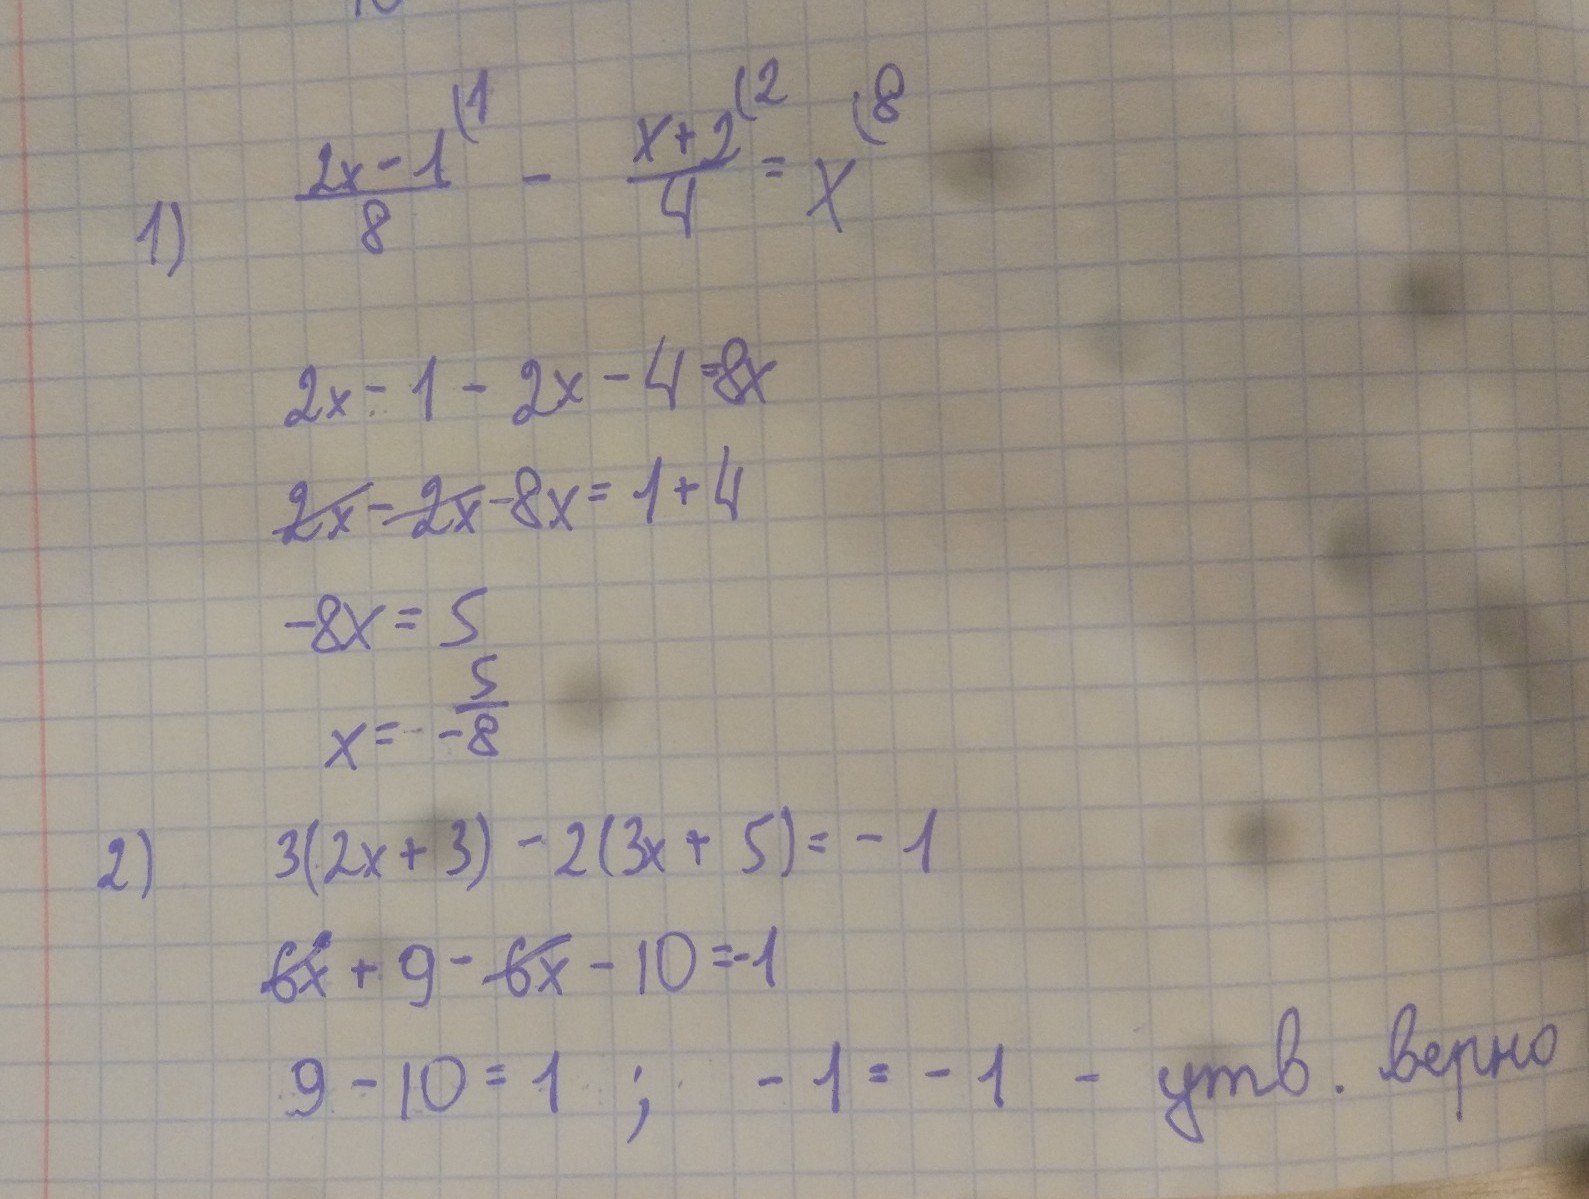 1) (2x-1)/8 (1 - (x+2)/4 (2 = x (8
2x-1-2x-4=8x
2x-2x-8x=1+4
-8x=5
x=-5/8
2) 3(2x+3)-2(3x+5)=-1
6x+9-6x-10=-1
9-10=1 ; -1=-1 - утв. верно